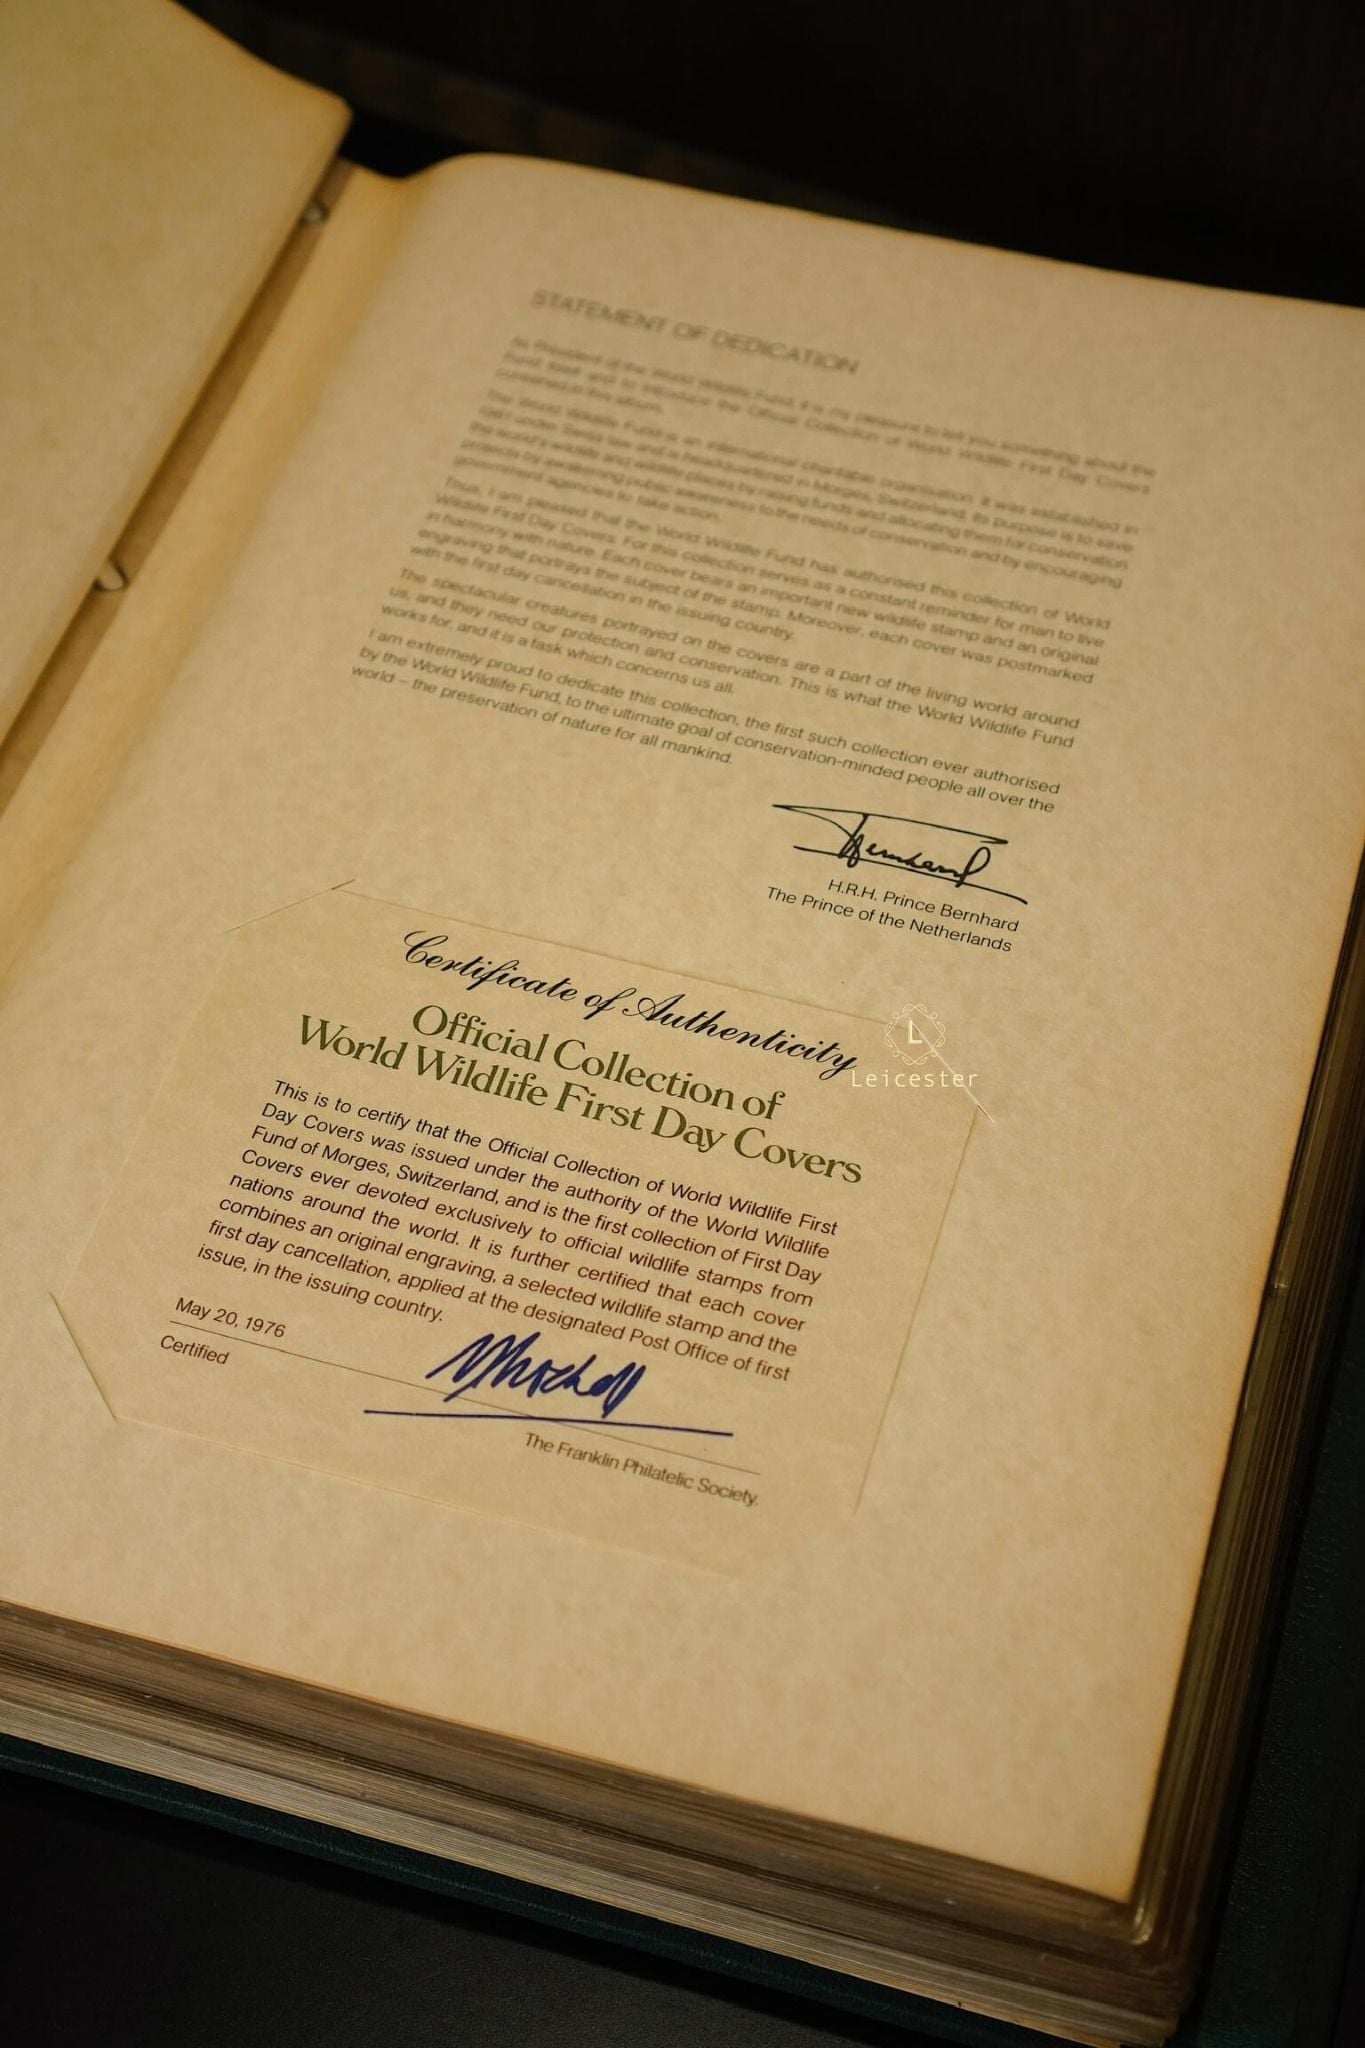 STATEMENT OF DEDICATION
As President of the World Wildlife Fund, it is my pleasure to tell you something about the
Fund itself and to introduce the Official Collection of World Wildlife First Day Covers
contained in this album.
The World Wildlife Fund is an international charitable organisation. It was established in
1961 under Swiss law and is headquartered in Morges, Switzerland. Its purpose is to save
the world's wildlife and wildlife places by raising funds and allocating them for conservation
projects by awakening public awareness to the needs of conservation and by encouraging
government agencies to take action.
Thus, I am pleased that the World Wildlife Fund has authorised this collection of World
Wildlife First Day Covers. For this collection serves as a constant reminder for man to live
in harmony with nature. Each cover bears an important new wildlife stamp and an original
engraving that portrays the subject of the stamp. Moreover, each cover was postmarked
with the first day cancellation in the issuing country.
The spectacular creatures portrayed on the covers are a part of the living world around
us, and they need our protection and conservation. This is what the World Wildlife Fund
works for, and it is a task which concerns us all.
I am extremely proud to dedicate this collection, the first such collection ever authorised
by the World Wildlife Fund, to the ultimate goal of conservation-minded people all over the
world – the preservation of nature for all mankind.
Bernhard
H.R.H. Prince Bernhard
The Prince of the Netherlands
Certificate of Authenticity
L
Leicester
Official Collection of
World Wildlife First Day Covers
This is to certify that the Official Collection of World Wildlife First
Day Covers was issued under the authority of the World Wildlife
Fund of Morges, Switzerland, and is the first collection of First Day
Covers ever devoted exclusively to official wildlife stamps from
nations around the world. It is further certified that each cover
combines an original engraving, a selected wildlife stamp and the
first day cancellation, applied at the designated Post Office of first
issue, in the issuing country.
May 20, 1976
Certified
The Franklin Philatelic Society.